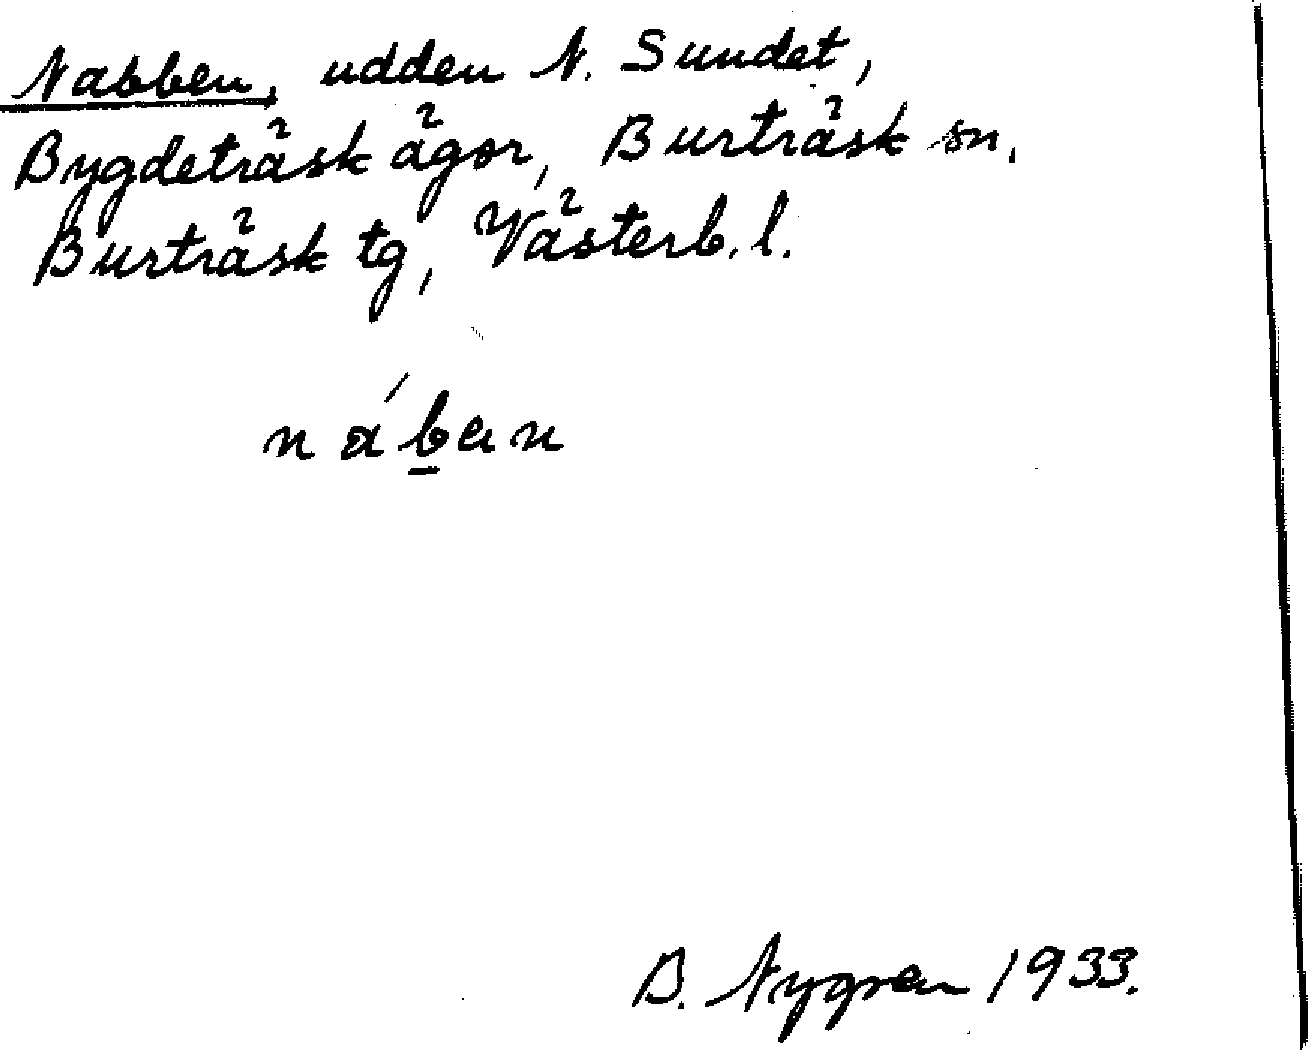 Nabben, udden N. Sundet,
Bygdeträsk ägor, Burträsk sn,
Burträsk tg, Västerb. l.
náb̲en
B. Nygren 1933.